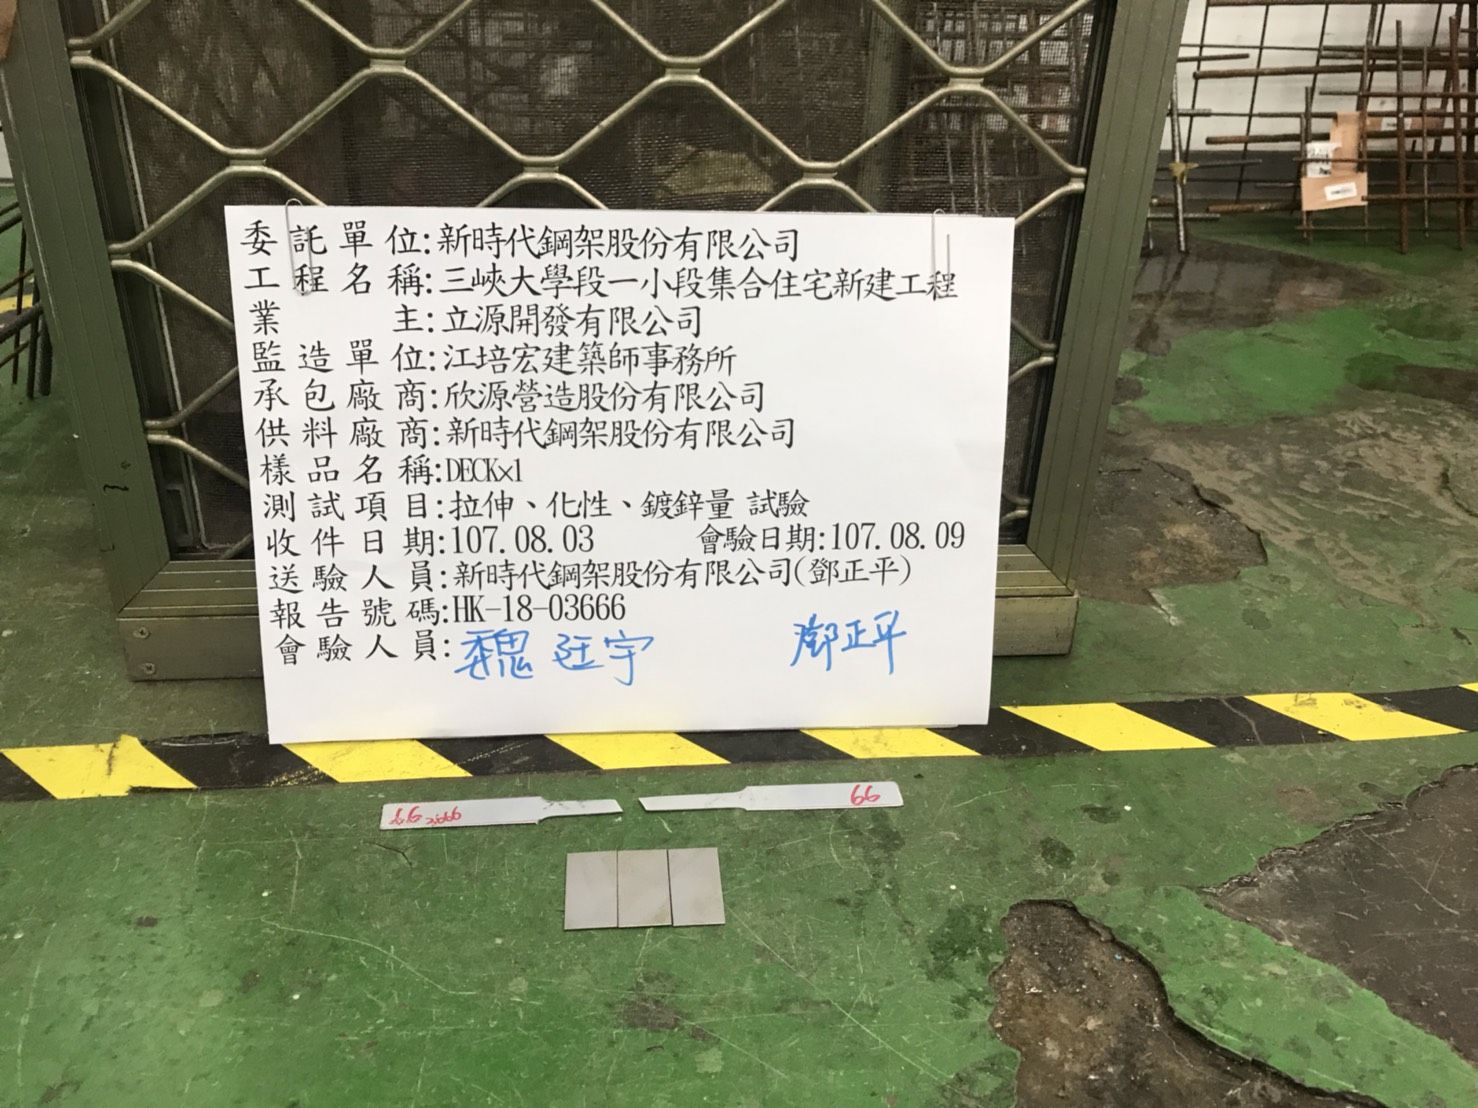 委託單位:新時代鋼架股份有限公司
工程名稱:三峽大學段一小段集合住宅新建工程
業主:立源開發有限公司
監造單位:江培宏建築師事務所
承包廠商:欣源營造股份有限公司
供料廠商:新時代鋼架股份有限公司
樣品名稱:DECK×1
測試項目:拉伸、化性、鍍鋅量 試驗
收件日期:107.08.03 會驗日期:107.08.09
送驗人員:新時代鋼架股份有限公司(鄧正平)
報告號碼:HK-18-03666
會驗人員:魏廷宇 鄧正平
66